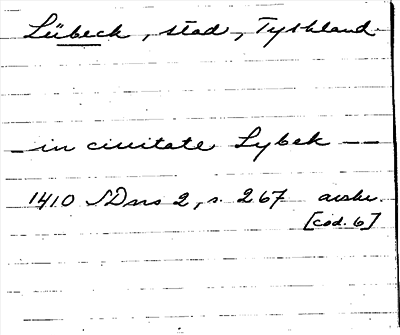 Lübeck, stad, Tyskland.
— in ciuitate Lybek —
1410 SDns 2, s. 267 avskr.
[cod. 6]